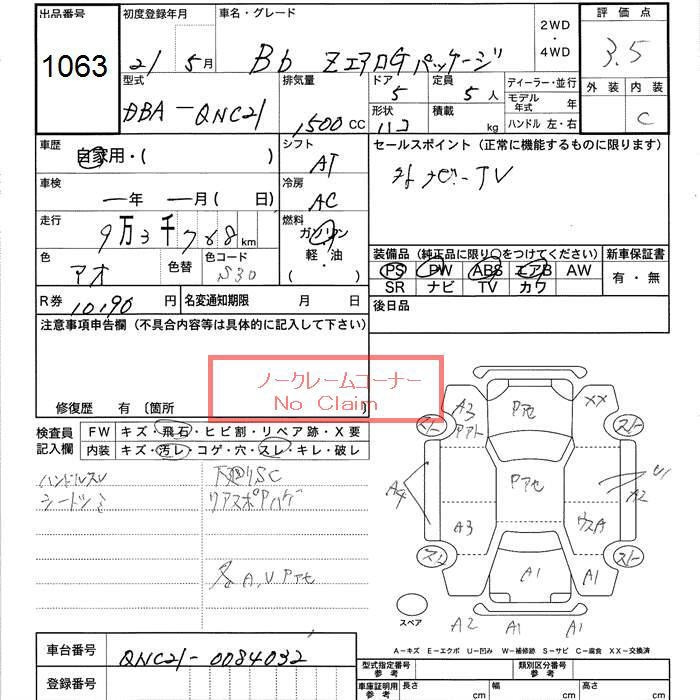 出品番号 初度登録年月 車名・グレード 2WD・4WD 評価点
1063 21 5月 Bb Zエアロ Gパッケージ 3.5
型式 排気量 ドア 定員 ディーラー・並行 外装 内装
DBA-QNC21 1,500 CC 5 5人 モデル年式 年 C
形状 積載 kg ハンドル 左・右
車歴 シフト セールスポイント(正常に機能するものに限ります)
自家用・( ) AT ナビ-TV
車検 冷房
一年 一月( 日) AC
走行 燃料
9万3千768km ガソリン
軽・油
( )
色 色替 色コード
アオ S30
装備品(純正品に限り○をつけてください) 新車保証書
PS PW ABS エアB AW 有・無
SR ナビ TV カワ
R券 10,190円 名変通知期限 月 日 後日品
注意事項申告欄(不具合内容等は具体的に記入して下さい)
ノークレームコーナー
No Claim
修復歴 有〔箇所
検査員記入欄 FW キズ・飛石・ヒビ割・リペア跡・X要
内装 キズ・汚レ・コゲ・穴・スレ・キレ・破レ
ハンドルスレ
シートシミ
リアスポアハゲ
各A,Uアセ
A3 アセ XX
スレ スレ
A4 アセ A2
A3 ウスA
スレ スレ
A1 A1 A1
スペア A2 A1 A1
A-キズ E-エクボ U-凹み W-補修跡 S-サビ C-腐食 XX-交換済
車台番号 QNC21-0084032
登録番号
型式指定番号 参考 類別区分番号 参考
車庫証明用 参考 長さ cm 幅 cm 高さ cm